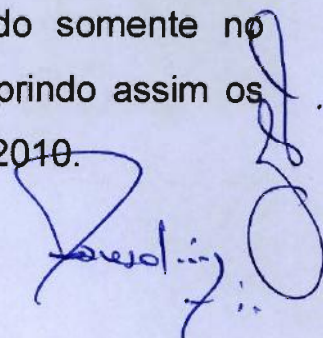 do somente no
orindo assim os
2010.